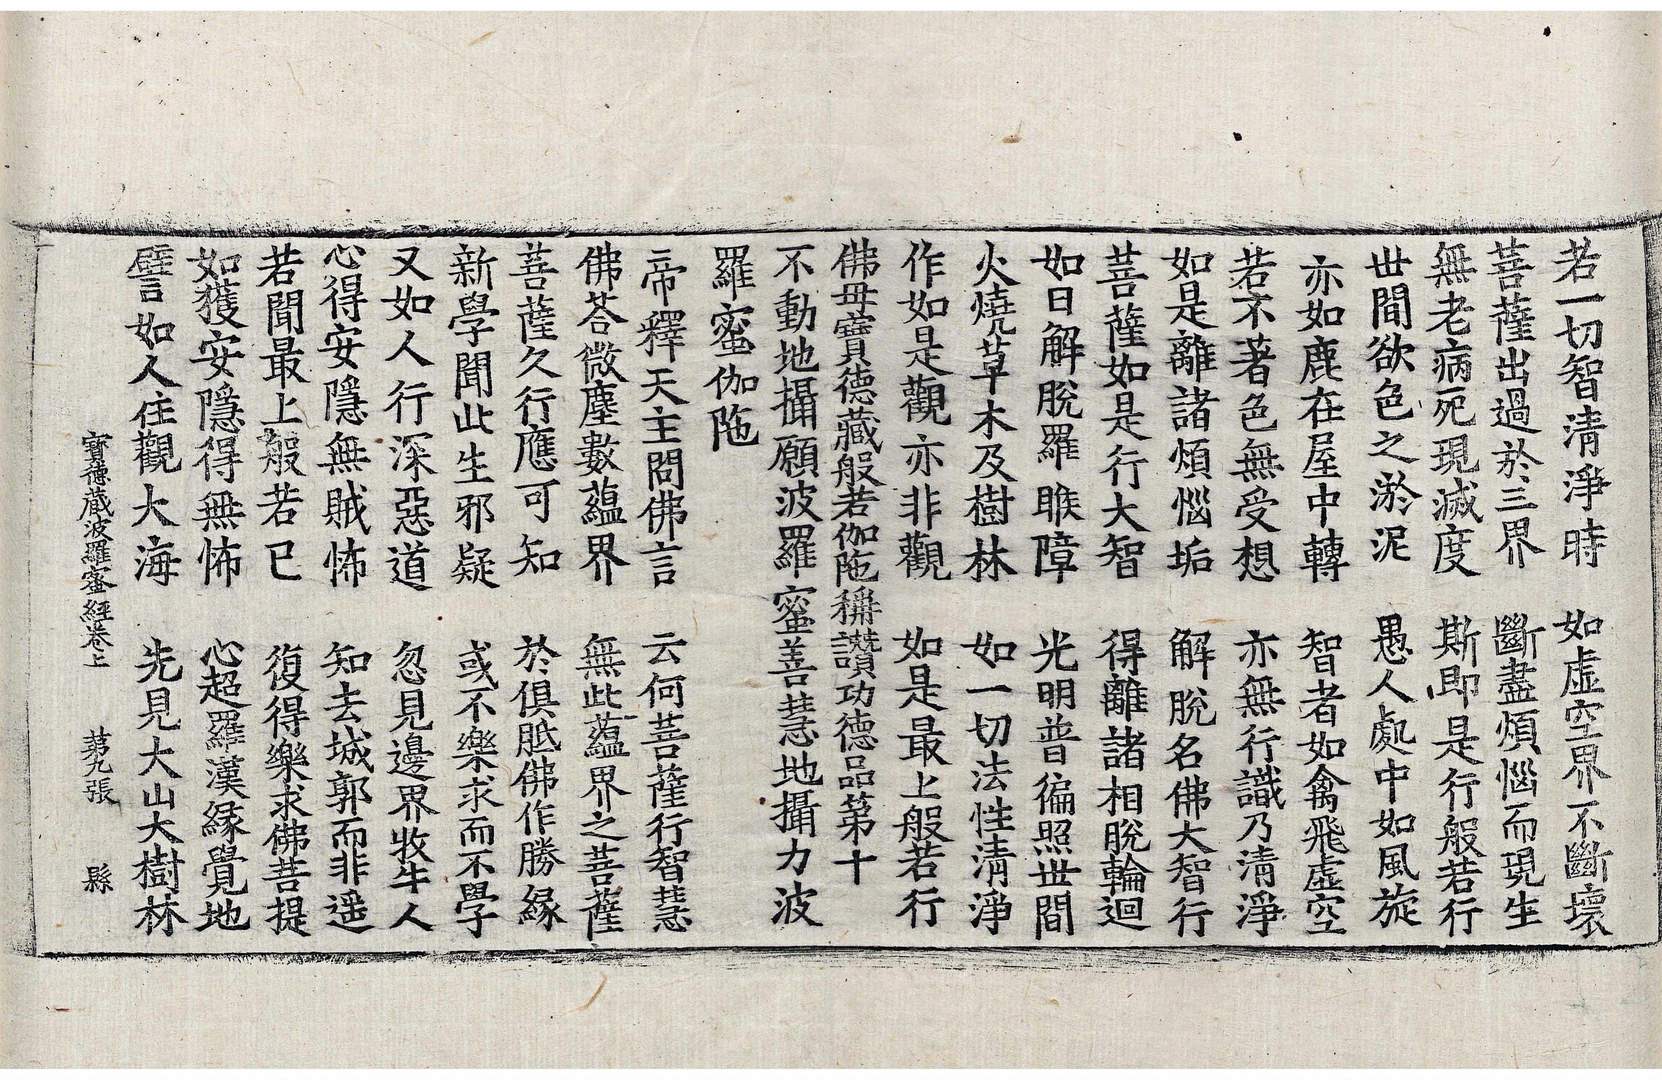 若一切智清淨時　如虛空界不斷壞
菩薩出過於三界　斷盡煩惱而現生
無老病死現滅度　斯即是行般若行
世間欲色之淤泥　愚人處中如風旋
亦如鹿在屋中轉　智者如禽飛虛空
若不著色無受想　亦無行識乃清淨
如是離諸煩惱垢　解脫名佛大智行
菩薩如是行大智　得離諸相脫輪迴
如日解脫羅睺障　光明普徧照世間
火燒草木及樹林　如一切法性清淨
作如是觀亦非觀　如是最上般若行
佛母寶德藏般若伽陁稱讚功德品第十
不動地攝願波羅蜜善慧地攝力波
羅蜜伽陁
帝釋天主問佛言　云何菩薩行智慧
佛荅微塵數蘊界　無此蘊界之菩薩
菩薩久行應可知　於俱胝佛作勝緣
新學聞此生邪疑　或不樂求而不學
又如人行深惡道　忽見邊界牧牛人
心得安隱無賊怖　知去城郭而非遥
若聞最上般若已　復得樂求佛菩提
如獲安隱得無怖　心超羅漢緣覺地
譬如人住觀大海　先見大山大樹林
寶德藏波羅蜜經卷上　第九張　縣